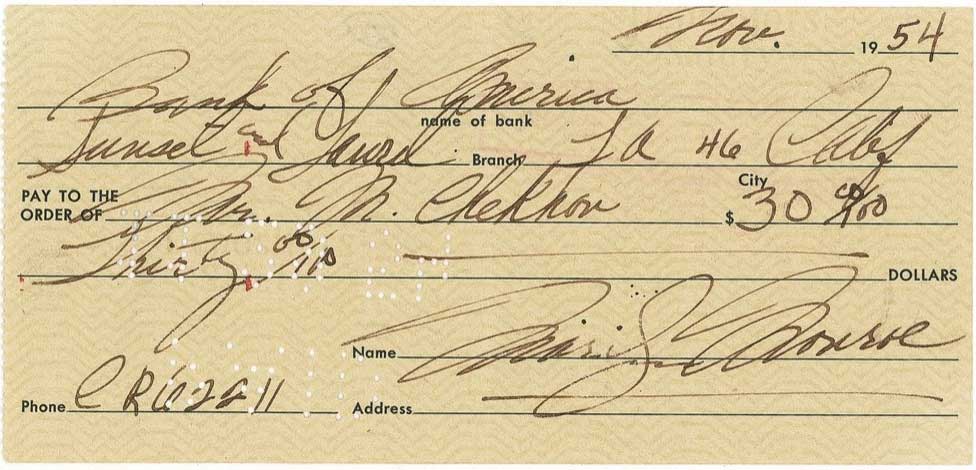 Nov. 19 54
Bank of America
name of bank
Sunset and Laurel Branch LA 46 Calif
City
PAY TO THE ORDER OF Mr. M. Chekhov $ 30 00/100
Thirty 00/100 DOLLARS
Name Marilyn Monroe
Phone CR62211 Address